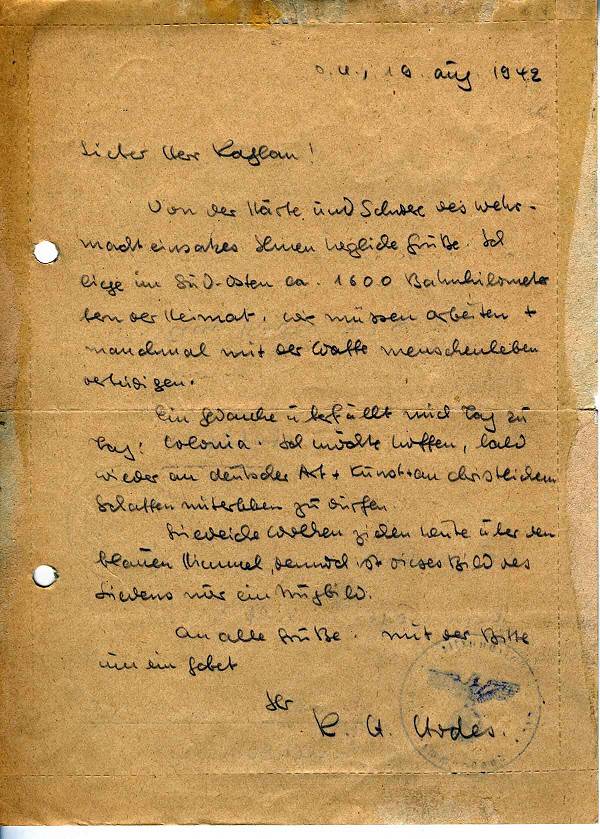 O.U., 19. Aug. 1942
Lieber Herr Kaplan!
Von der Härte und Schwere des Wehr-
machteinsatzes Ihnen herzliche Grüße. Ich
liege im Süd-Osten ca. 1600 Bahnkilometer
fern der Heimat. Wir müssen arbeiten +
manchmal mit der Waffe Menschenleben
verteidigen.
Ein Gedanke überfällt mich Tag zu
Tag: Colonia. Ich möchte hoffen, bald
wieder an deutscher Art + Kunst + an christlichem
Schaffen miterleben zu dürfen.
Weiche Wolken ziehen heute über den
blauen Himmel, dennoch ist dieses Bild des
Friedens nur ein Trugbild.
An alle Grüße. Mit der Bitte
um ein Gebet
Ihr
K. H.